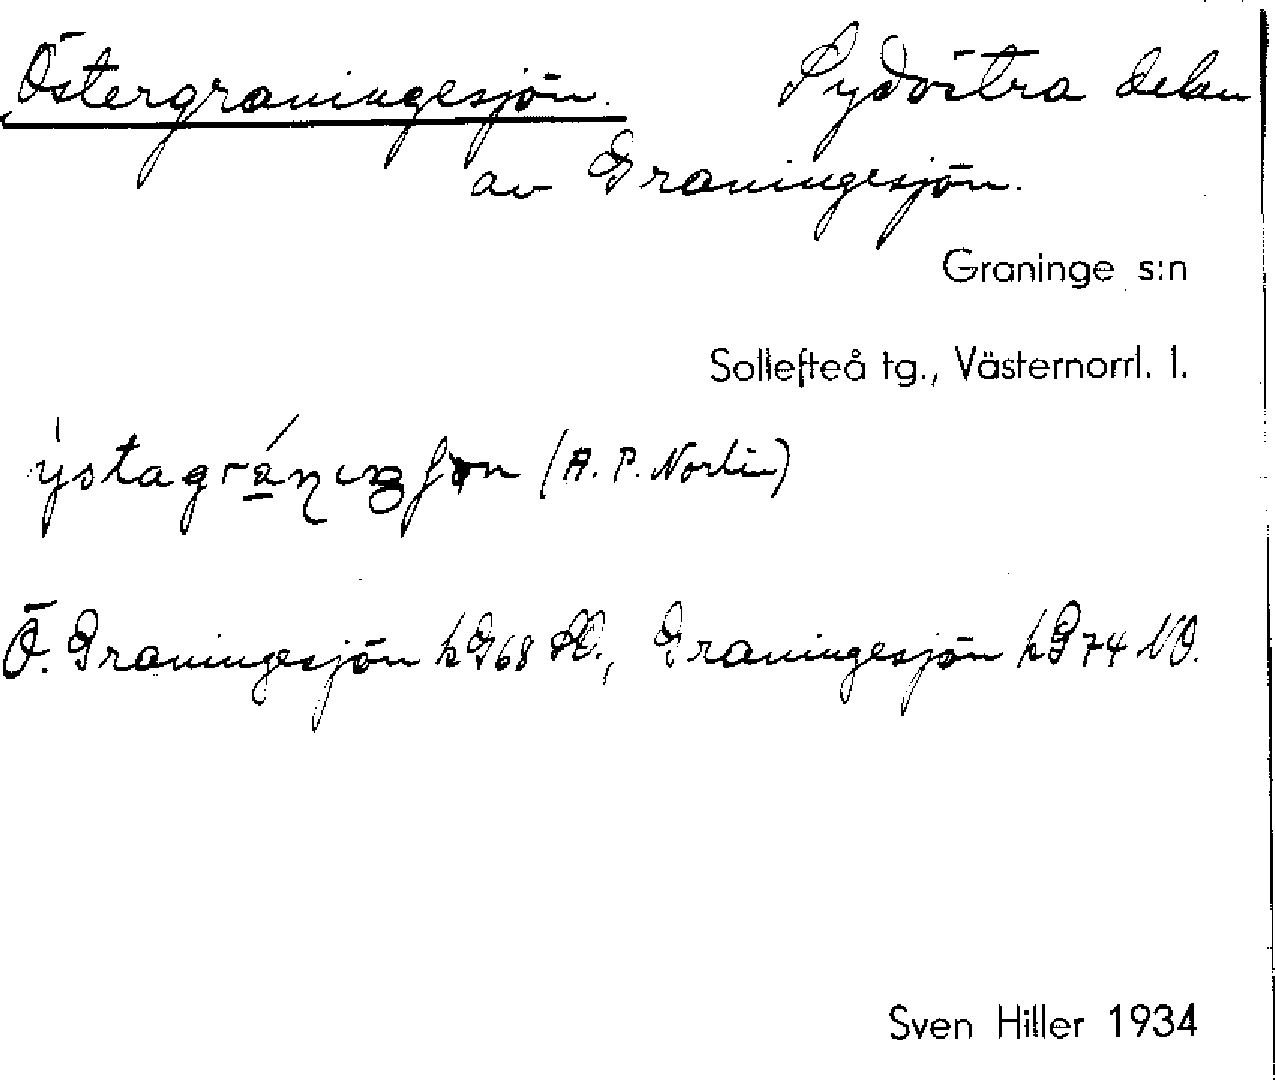 Östergraningesjön. Sydöstra delen
av Graningesjön.
Graninge s:n
Sollefteå tg., Västernorrl. l.
(A. P. Norlin)
Ö. Graningesjön hG68 SO., Graningesjön hG74 NO.
Sven Hiller 1934